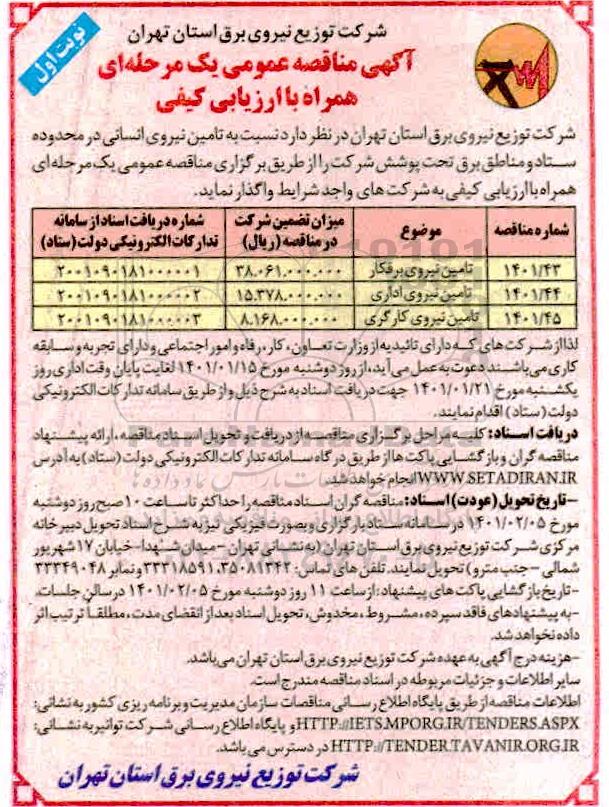 نوبت اول
شرکت توزیع نیروی برق استان تهران
آگهی مناقصه عمومی یک مرحله‌ای
همراه با ارزیابی کیفی
شرکت توزیع نیروی برق استان تهران در نظر دارد نسبت به تامین نیروی انسانی در محدوده
ستاد و مناطق برق تحت پوشش شرکت را از طریق برگزاری مناقصه عمومی یک مرحله ای
همراه با ارزیابی کیفی به شرکت های واجد شرایط واگذار نماید.
شماره مناقصه موضوع میزان تضمین شرکت در مناقصه (ریال) شماره دریافت اسناد از سامانه تدارکات الکترونیکی دولت (ستاد)
۱۴۰۱/۴۳ تامین نیروی برقکار ۳۸.۰۶۱.۰۰۰.۰۰۰ ۲۰۰۱۰۹۰۱۸۱۰۰۰۰۰۱
۱۴۰۱/۴۴ تامین نیروی اداری ۱۵.۳۷۸.۰۰۰.۰۰۰ ۲۰۰۱۰۹۰۱۸۱۰۰۰۰۰۲
۱۴۰۱/۴۵ تامین نیروی کارگری ۸.۱۶۸.۰۰۰.۰۰۰ ۲۰۰۱۰۹۰۱۸۱۰۰۰۰۰۳
لذا از شرکت های که دارای تائیدیه از وزارت تعاون، کار، رفاه و امور اجتماعی و دارای تجربه و سابقه
کاری می باشند دعوت به عمل می آید، از روز دوشنبه مورخ ۱۴۰۱/۰۱/۱۵ لغایت پایان وقت اداری روز
یکشنبه مورخ ۱۴۰۱/۰۱/۲۱ جهت دریافت اسناد به شرح ذیل و از طریق سامانه تدارکات الکترونیکی
دولت (ستاد) اقدام نمایند.
دریافت اسناد: کلیه مراحل برگزاری مناقصه از دریافت و تحویل اسناد مناقصه، ارائه پیشنهاد
مناقصه گران و بازگشایی پاکت ها از طریق درگاه سامانه تدارکات الکترونیکی دولت (ستاد) به آدرس
WWW.SETADIRAN.IR انجام خواهد شد.
-تاریخ تحویل (عودت) اسناد: مناقصه گران اسناد مناقصه را حداکثر تا ساعت ۱۰ صبح روز دوشنبه
مورخ ۱۴۰۱/۰۲/۰۵ در سامانه ستاد بارگزاری و بصورت فیزیکی نیز به شرح اسناد تحویل دبیرخانه
مرکزی شرکت توزیع نیروی برق استان تهران (به نشانی تهران - میدان شهدا - خیابان ۱۷ شهریور
شمالی - جنب مترو) تحویل نمایند. تلفن های تماس: ۳۵۰۸۱۳۴۲، ۳۳۳۱۸۵۹۱ و نمابر ۳۳۳۴۹۰۴۸
-تاریخ بازگشایی پاکت های پیشنهاد: از ساعت ۱۱ روز دوشنبه مورخ ۱۴۰۱/۰۲/۰۵ در سالن جلسات.
-به پیشنهادهای فاقد سپرده، مشروط، مخدوش، تحویل اسناد بعد از انقضای مدت، مطلقاً ترتیب اثر
داده نخواهد شد.
-هزینه درج آگهی به عهده شرکت توزیع نیروی برق استان تهران می‌باشد.
سایر اطلاعات و جزئیات مربوطه در اسناد مناقصه مندرج است.
اطلاعات مناقصه از طریق پایگاه اطلاع رسانی مناقصات سازمان مدیریت و برنامه ریزی کشور به نشانی:
HTTP://IETS.MPORG.IR/TENDERS.ASPX و پایگاه اطلاع رسانی شرکت توانیر به نشانی:
HTTP://TENDER.TAVANIR.ORG.IR در دسترس می باشد.
شرکت توزیع نیروی برق استان تهران